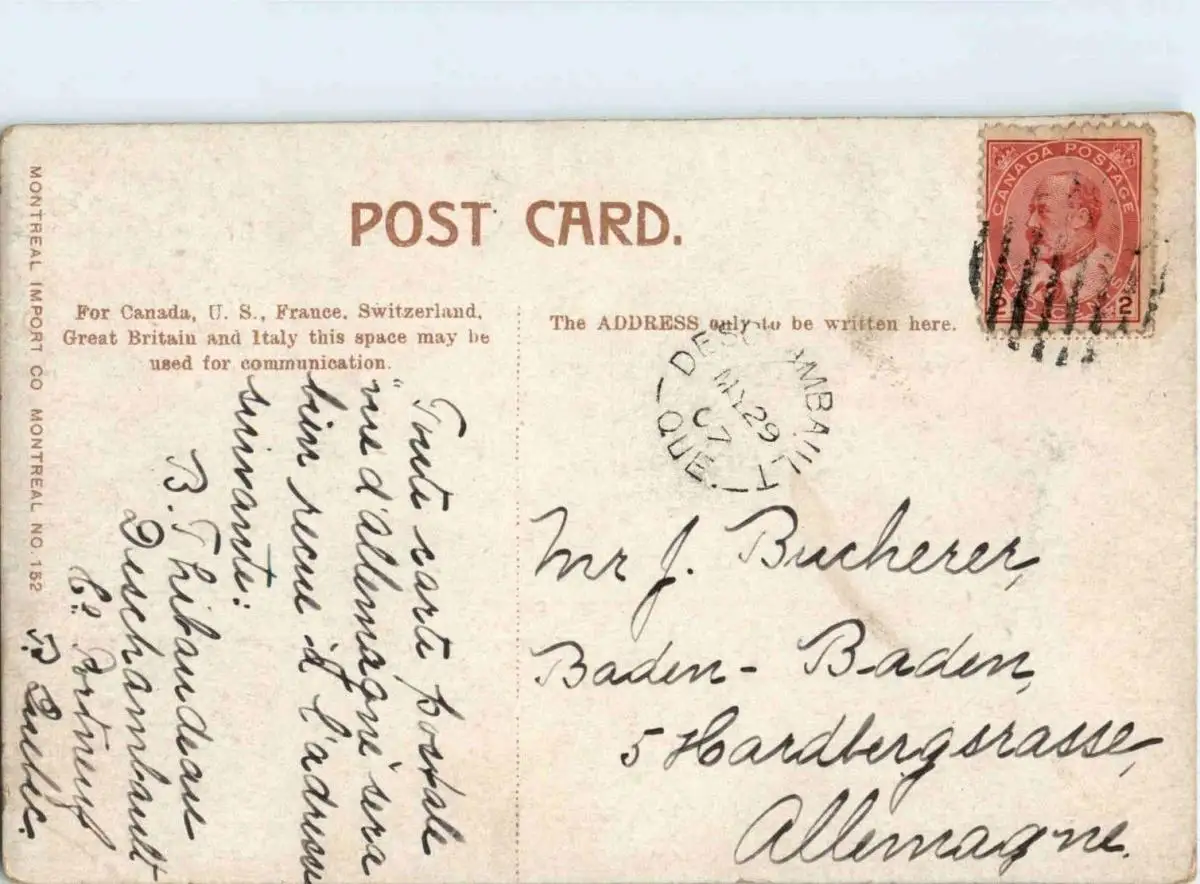 POST CARD.
MONTREAL IMPORT CO MONTREAL NO. 152
For Canada, U. S., France, Switzerland,
Great Britain and Italy this space may be
used for communication.
The ADDRESS only to be written here.
CANADA POSTAGE
2 2
DESCHAMBAULT
MY 29
07
QUE.
Toute carte postale
"vue d'allemagne" sera
bien recue à l'adresse
suivante:
B. Thibaudeau
Deschambault
Co. Portneuf
P. Quebec.
Mr J. Bucherer,
Baden-Baden,
5 Hardbergsrasse,
Allemagne.